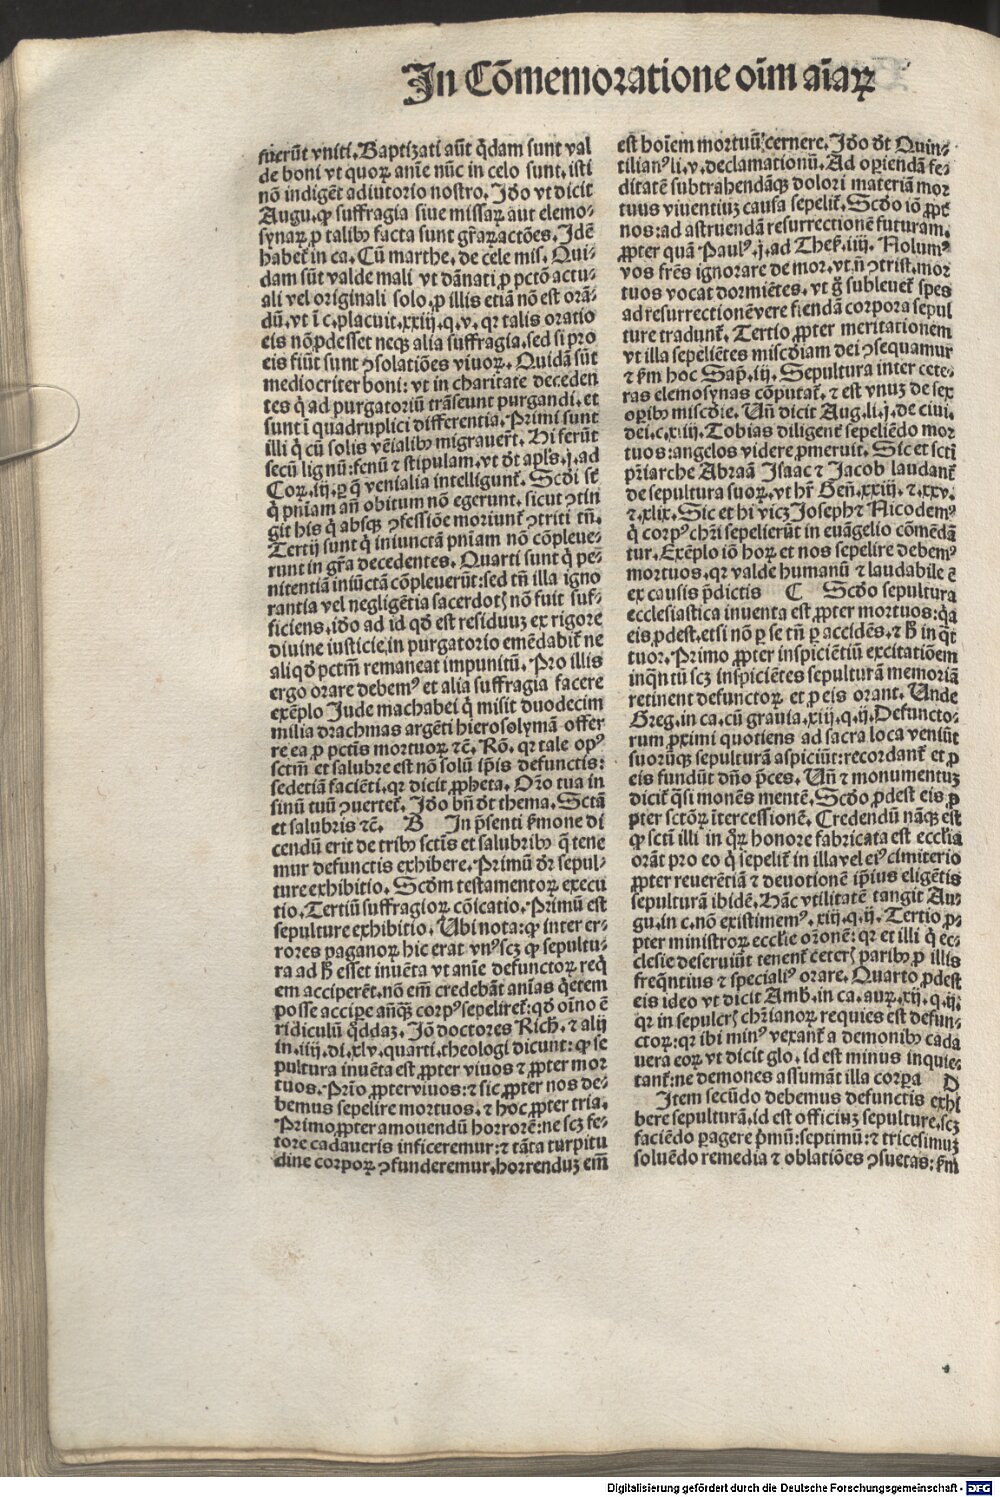 In Cōmemoratione oīm aīaꝝ
fuerūt vniti. Baptizati aūt q̄dam sunt val
de boni vt quoꝝ anīe nūc in celo sunt, isti
nō indigēt adiutorio nostro. Iꝺo vt dicit
Augu. ꝙ suffragia siue missaꝝ aut elemo⸗
synaꝝ ꝓ talibꝰ facta sunt gr̄aꝝactōes. Idē
habet̄ in ca. Cū marthe. de cele mis. Qui⸗
dam sūt valde mali vt dānati ꝓ pctō actu⸗
ali vel originali solo, ꝓ illis etiā nō est orā⸗
dū, vt ī c. placuit. xxiij. q. v. qꝛ talis oratio
eis nō ꝓdesset neqꝫ alia suffragia, sed si pro
eis fiūt sunt ꝯsolatiōes viuoꝝ. Quidā sūt
mediocriter boni: vt in charitate deceden
tes q̇ ad purgatoriū trāseunt purgandi. et
sunt ī quadruplici differentia. Primi sunt
illi q̇ cū solis vēialibꝰ migrauer̄t. Hi ferūt
secū lignū: fenū ⁊ stipulam, vt ꝺt apl̄s. j. ad
Coꝝ. iij. ꝑ q̄ venialia intelligunt̄. Scꝺi st̄
q̇ pniam an̄ obitum nō egerunt. sicut ꝯtin
git his q̇ absqꝫ ꝯfessiōe moriunt̄ ꝯtriti tn̄.
Tertij sunt q̇ iniunctā pniam nō cōpleue⸗
runt in gr̄a decedentes. Quarti sunt q̇ pe⸗
nitentiā iniūctā cōpleuerūt: sed tn̄ illa igno
rantia vel negligētia sacerdotꝭ nō fuit suf⸗
ficiens, iꝺo ad id qꝺ est residuuꝫ ex rigore
diuine iusticie, in purgatorio emēdabit̄ ne
aliqꝺ pctm̄ remaneat impunitū. Pro illis
ergo orare debemꝰ et alia suffragia facere
exēplo Iude machabei q̇ misit duodecim
milia drachmas argēti hierosolymā offer
re ea ꝓ pctīs mortuoꝝ ⁊c̄. Rō. qꝛ tale opꝰ
sctm̄ et salubre est nō solū ip̄is defunctis:
sed etiā faciēti, qꝛ dicit ꝓpheta. Or̄o tua in
sinū tuū ꝯuertet̄. Iꝺo bn̄ ꝺt thema. Sctā
et salubris ⁊c̄. B In p̄senti ẜmone di
cendū erit de tribꝰ sctīs et salubribꝰ q̄ tene
mur defunctis exhibere. Primū ꝺr sepul⸗
ture exhibitio. Scꝺm testamentoꝝ execu
tio. Tertiū suffragioꝝ cōicatio. Primū est
sepulture exhibitio. Ubi nota: ꝙ inter er⸗
rores paganoꝝ hic erat vnꝰ scꝫ ꝙ sepultu⸗
ra ad ħ esset inuēta vt anīe defunctoꝝ req̇
em acciperēt. nō em̄ credebāt anīas q̇etem
posse accipe an̄qꝫ corpꝰ sepeliret̄: qꝺ oīno ē
ridiculū q̇ddaꝫ. Iō doctores Rich. ⁊ alij
in. iiij. di. xlv. quarti. theologi dicunt: ꝙ se
pultura inuēta est ꝓpter viuos ⁊ ꝓpter mor
tuos. Prīo ꝓpter viuos: ⁊ sic ꝓpter nos de⸗
bemus sepelire mortuos. ⁊ hoc ꝓpter tria.
Primo ꝓpter amouendū horrorē: ne scꝫ fe⸗
tore cadaueris inficeremur: ⁊ tāta turpitu
dine corpoꝝ ꝯfunderemur. horrenduꝫ em̄
est hoīem mortuū cernere. Iꝺo ꝺt Quin⸗
tilianꝰ li. v. declamationū. Ad operiendā fe⸗
ditatē subtrahendāqꝫ dolori materiā mor
tuus viuentiuꝫ causa sepelit̄. Scꝺo iō ꝓpt̄
nos: ad astruendā resurrectionē futuram.
ꝓpter quā Paulꝰ. j. ad Thes̄. iiij. Nolumꝰ
vos fr̄es ignorare de mor. vt n̄ ꝯtrist. mor
tuos vocat dormiētes. vt ḡ subleuet̄ spes
ad resurrectionē vere fiendā corpora sepul
ture tradunt̄. Tertio ꝓpter meritationem
vt illa sepeliētes miscꝺiam dei ꝯsequamur
⁊ ẜm hoc Sap̄. iij. Sepultura inter cete⸗
ras elemosynas cōputat̄. ⁊ est vnuꝫ de sex
oꝑibꝰ miscꝺie. Un̄ dicit Aug. li. j. de ciui.
dei. c. xiij. Tobias diligent̄ sepeliēdo mor
tuos: angelos videre ꝓmeruit. Sic et sctī
pr̄iarche Abraā Isaac ⁊ Iacob laudant̄
de sepultura suoꝝ. vt hr̄ Gen̄. xxiij. ⁊. xxv.
⁊. xlix. Sic et hi vicꝫ Ioseph ⁊ Nicodemꝰ
q̇ corpꝰ chr̄i sepelierūt in euāgelio cōmēdā
tur. Exēplo iō hoꝝ et nos sepelire debemꝰ
mortuos. qꝛ valde humanū ⁊ laudabile ē
ex causis p̄dictis C Scꝺo sepultura
ecclesiastica inuenta est ꝓpter mortuos: q̇a
eis ꝓdest. etsi nō ꝑ se tn̄ ꝑ accidēs. ⁊ ħ in q̄t
tuor. Primo ꝓpter inspiciētiū excitatiōem
inqn̄tū scꝫ inspiciētes sepulturā memoriā
retinent defunctoꝝ et ꝓ eis orant. Unde
Greg. in ca. cū grauia. xiij. q. ij. Defuncto⸗
rum ꝓximi quotiens ad sacra loca veniūt
suorūqꝫ sepulturā aspiciūt: recordant̄ et ꝓ
eis fundūt dn̄o p̄ces. Un̄ ⁊ monumentuꝫ
dicit̄ q̄si monēs mentē. Scꝺo ꝓdest eis ꝓ
pter sctōꝝ ītercessionē. Credendū nāqꝫ est
ꝙ sctī illi in q̊ꝝ honore fabricata est ecclīa
orāt pro eo q̇ sepelit̄ in illa vel eiꝰ cimiterio
ꝓpter reuerētiā ⁊ deuotionē ip̄ius eligētis
sepulturā ibidē. Hāc vtilitatē tangit Au⸗
gu. in c. nō existimemꝰ. xiij. q. ij. Tertio ꝓ⸗
pter ministroꝝ ecclīe or̄onē: qꝛ et illi q̇ ec⸗
clesie deseruiūt tenent̄ ceterꝭ paribꝰ ꝓ illis
freq̄ntius ⁊ specialiꝰ orare. Quarto ꝓdest
eis ideo vt dicit Amb. in ca. auꝝ. xij. q. ij.
qꝛ in sepulcrꝭ chr̄ianoꝝ requies est defun⸗
ctoꝝ: qꝛ ibi minꝰ vexant̄ a demonibꝰ cada
uera eoꝝ vt dicit glo. id est minus inquie⸗
tant̄: ne demones assumāt illa corꝑa D
Item secūdo debemus defunctis exhi
bere sepulturā, id est officiuꝫ sepulture, scꝫ
faciēdo ꝑagere p̄mū: septimū: ⁊ tricesimuꝫ
soluēdo remedia ⁊ oblatiōes ꝯsuetas: ẜm
Digitalisierung gefördert durch die Deutsche Forschungsgemeinschaft - DFG